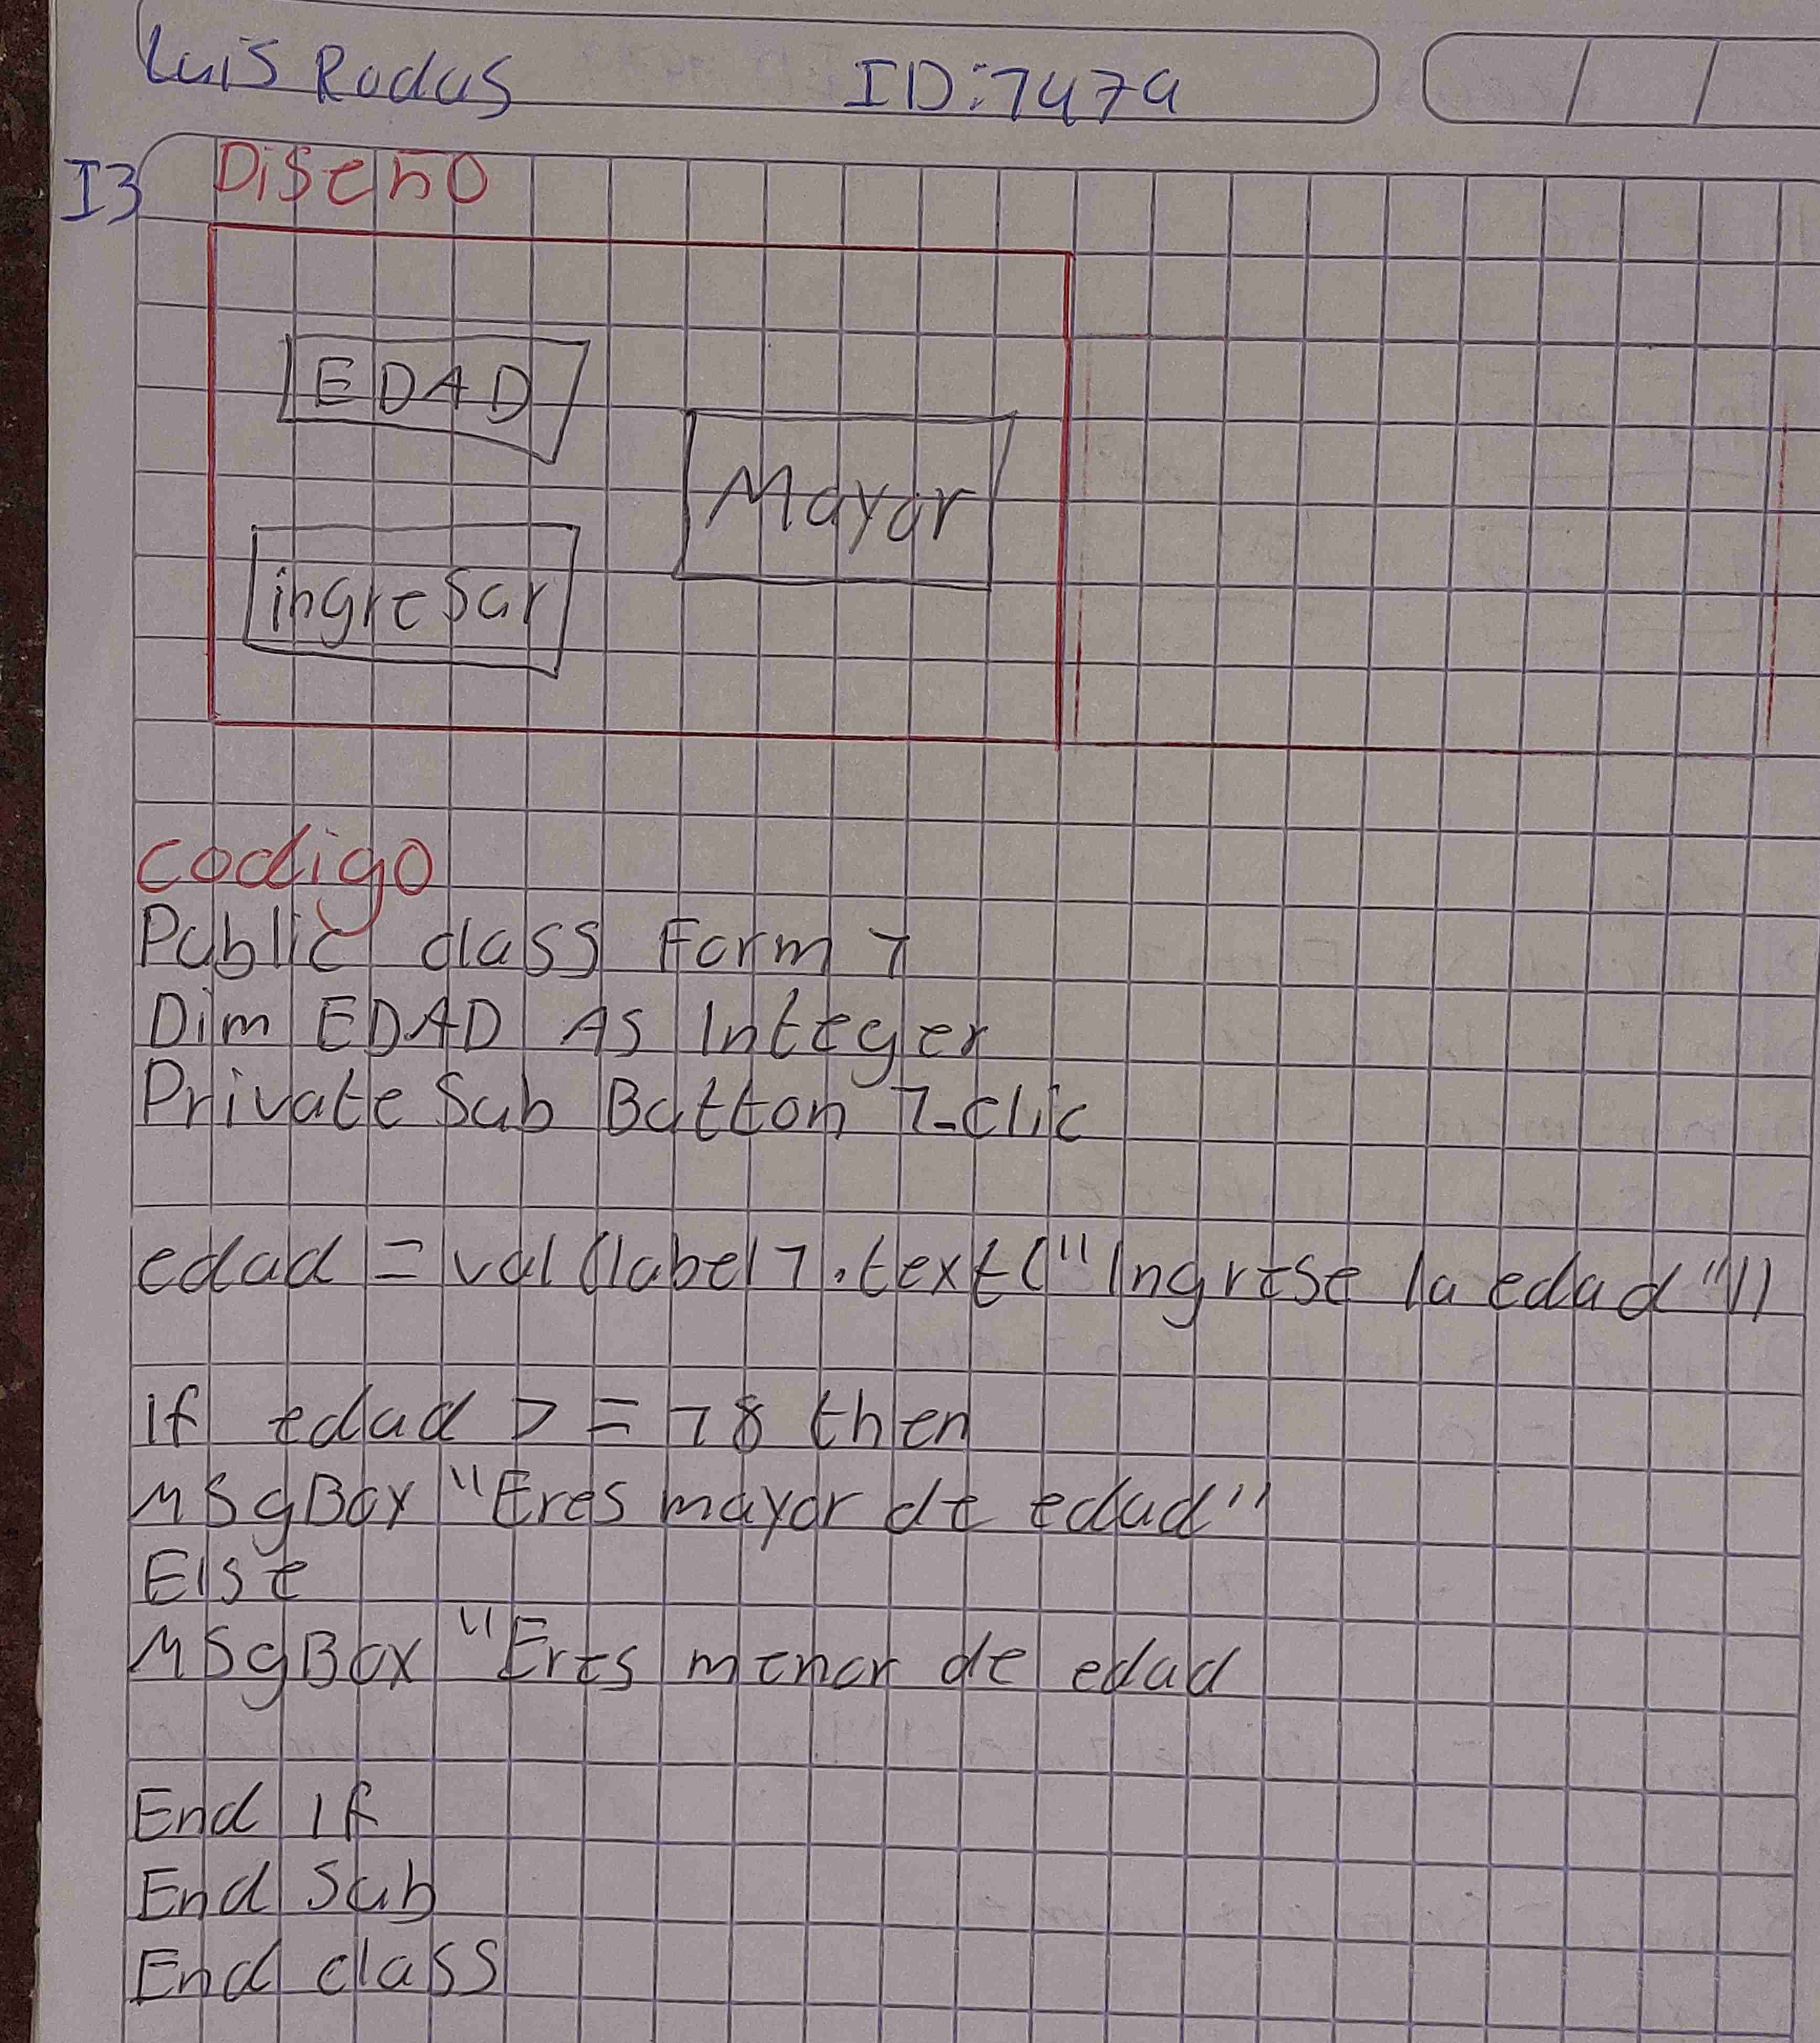 Luis Rodas ID:1474
I3 Diseño
EDAD
Mayor
ingresar
codigo
Public class Form 1
Dim EDAD As Integer
Private Sub Button 1_clic
edad = val(label1.text("Ingrese la edad"))
if edad >= 18 then
MsgBox "Eres mayor de edad"
Else
MsgBox "Eres menor de edad
End If
End Sub
End class